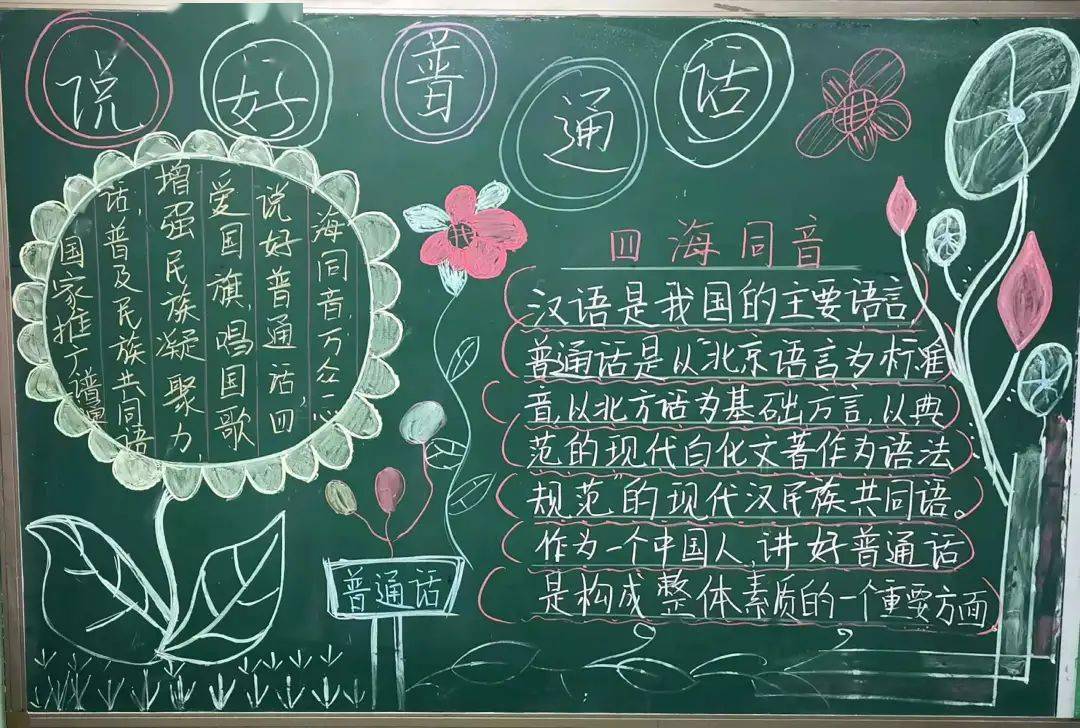 说好普通话
国家推广谱通
话,普及民族共同语
增强民族凝聚力,
爱国旗,唱国歌
说好普通话,四
海同音,万众一心
普通话
四海同音
汉语是我国的主要语言,
普通话是以"北京语言为标准
音,以北方话为基础方言,以典
范的现代白化文著作为语法
规范"的现代汉民族共同语。
作为一个中国人,讲好普通话
是构成整体素质的一个重要方面